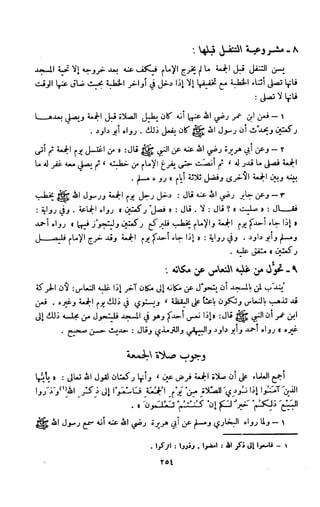 ٨ - مشروعية التنفل قبلها :
يسن التنفل قبل الجمعة ما لم يخرج الإمام فيكف عنه بعد خروجه إلا تحية المسجد
فإنها تصلى أثناء الخطبة مع تخفيفها إلا إذا دخل في أواخر الخطبة بحيث ضاق عنها الوقت
فإنها لا تصلى :
١ - فعن ابن عمر رضي الله عنهما أنه كان يطيل الصلاة قبل الجمعة ويصلي بعدها
ركعتين ويحدث أن رسول الله ﷺ كان يفعل ذلك . رواه أبو داود .
٢ - وعن أبي هريرة رضي الله عنه عن النبي ﷺ قال : « من اغتسل يوم الجمعة ثم أتى
الجمعة فصلى ما قدر له ، ثم أنصت حتى يفرغ الإمام من خطبته ، ثم يصلي معه غفر له ما
بينه وبين الجمعة الأخرى وفضل ثلاثة أيام » رواه مسلم .
٣ - وعن جابر رضي الله عنه قال : دخل رجل يوم الجمعة ورسول الله ﷺ يخطب
فقال : « صليت » ؟ قال : لا . قال : « فصل ركعتين » رواه الجماعة . وفي رواية :
« إذا جاء أحدكم يوم الجمعة والإمام يخطب فليركع ركعتين وليتجوز فيهما » رواه أحمد
ومسلم وأبو داود . وفي رواية : « إذا جاء أحدكم يوم الجمعة وقد خرج الإمام فليصل
ركعتين » متفق عليه .
٩ - تحول من غلبه النعاس عن مكانه :
يندب لمن بالمسجد أن يتحول عن مكانه إلى مكان آخر إذا غلبه النعاس : لأن الحركة
قد تذهب بالنعاس وتكون باعثا على اليقظة ، ويستوي في ذلك يوم الجمعة وغيره . فعن
ابن عمر أن النبي ﷺ قال : « إذا نعس أحدكم وهو في المسجد فليتحول من مجلسه ذلك إلى
غيره » رواه أحمد وأبو داود والبيهقي والترمذي وقال : حديث حسن صحيح .
وجوب صلاة الجمعة
أجمع العلماء على أن صلاة الجمعة فرض عين ، وأنها ركعتان لقول الله تعالى : « يأيها
الذين آمنوا إذا نودي للصلاة من يوم الجمعة فاسعوا إلى ذكر الله (١) وذروا
البيع ذلكم خير لكم إن كنتم تعلمون » .
١ - ولما رواه البخاري ومسلم عن أبي هريرة رضي الله عنه أنه سمع رسول الله ﷺ
١ - فاسعوا إلى ذكر الله : امضوا . وذروا : اتركوا .
٢٥٤